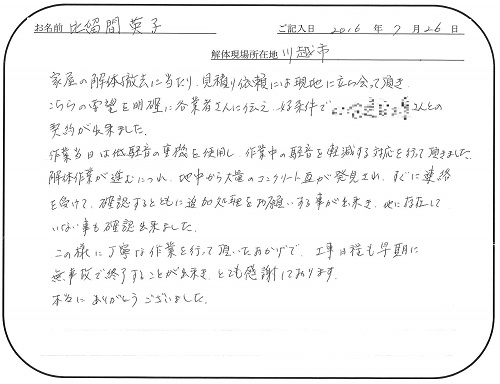 お名前 比留間 英子 ご記入日 2016 年 7 月 26 日
解体現場所在地 川越市
家屋の解体撤去に当たり、見積り依頼には現地に立ち会って頂き
こちらの要望を明確に各業者さんに伝え、好条件で さんとの
契約が出来ました。
作業当日は低騒音の重機を使用し、作業中の騒音を軽減する対応を行って頂きました。
解体作業が進むにつれ、地中から大量のコンクリート直が発見され、すぐに連絡
を受けて、確認するとともに追加処理をお願いする事が出来き、他に存在して
いない事も確認出来ました。
この様に丁寧な作業を行って頂いたおかげで、工事日程も早期に
無事故で終了することが出来き、とても感謝しております。
本当にありがとうございました。